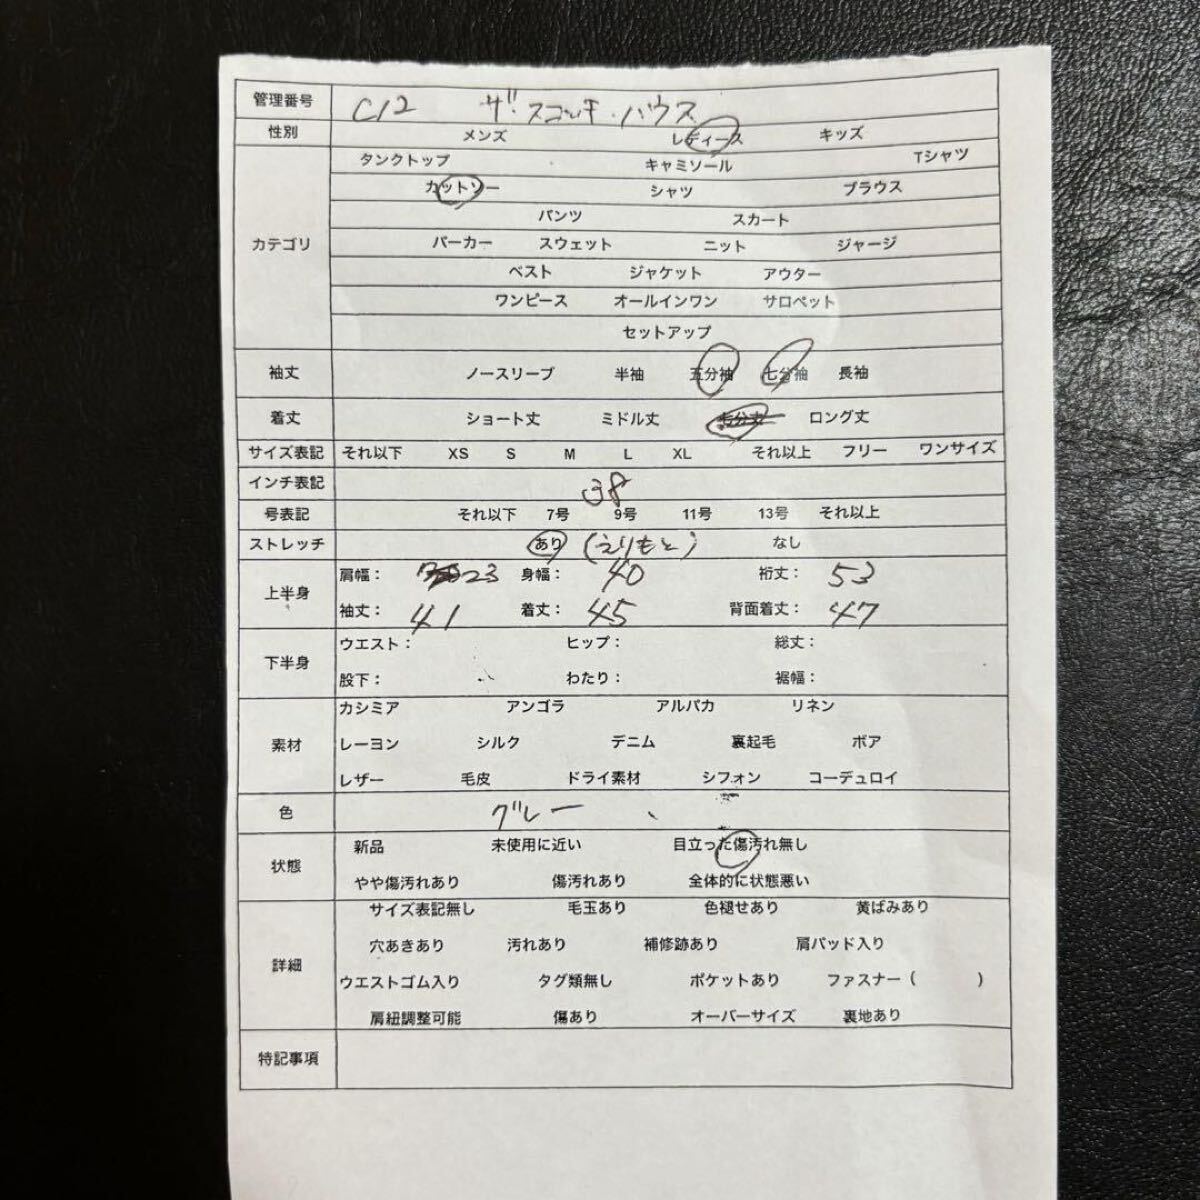 管理番号 C12 ザ・スコッチ・ハウス
性別 メンズ レディース キッズ
タンクトップ キャミソール Tシャツ
カットソー シャツ ブラウス
パンツ スカート
カテゴリ パーカー スウェット ニット ジャージ
ベスト ジャケット アウター
ワンピース オールインワン サロペット
セットアップ
袖丈 ノースリーブ 半袖 五分袖 七分袖 長袖
着丈 ショート丈 ミドル丈 七分丈 ロング丈
サイズ表記 それ以下 XS S M L XL それ以上 フリー ワンサイズ
インチ表記 38
号表記 それ以下 7号 9号 11号 13号 それ以上
ストレッチ あり (えりもと) なし
上半身 肩幅： 23 身幅： 40 裄丈： 53
袖丈： 41 着丈： 45 背面着丈： 47
下半身 ウエスト： ヒップ： 総丈：
股下： わたり： 裾幅：
カシミア アンゴラ アルパカ リネン
素材 レーヨン シルク デニム 裏起毛 ボア
レザー 毛皮 ドライ素材 シフォン コーデュロイ
色 グレー
状態 新品 未使用に近い 目立った傷汚れ無し
やや傷汚れあり 傷汚れあり 全体的に状態悪い
サイズ表記無し 毛玉あり 色褪せあり 黄ばみあり
詳細 穴あきあり 汚れあり 補修跡あり 肩パッド入り
ウエストゴム入り タグ類無し ポケットあり ファスナー（ ）
肩紐調整可能 傷あり オーバーサイズ 裏地あり
特記事項